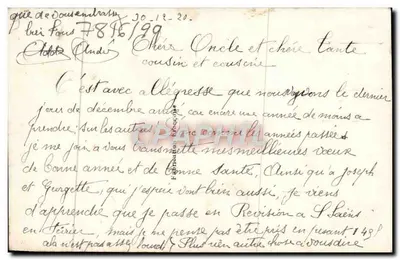 que de vous embrasser 30-12-20.
bien fous 7896/99
André Cher Oncle et chère tante
cousin et cousine
C'est avec allégresse que nous voyons le dernier
jour de décembre arrivé, car encore une année de moins a
prendre sur les autres années passées
je me joie a vous transmettre mes meilleures vœux
de bonne année et de bonne santé, Ainsi qu'a Joseph
et Gurgette, qui j'espère vont bien aussi, je viens
d'apprendre que je passe en Revision a S Saëns
en Février, mais je me pense pas être pris en pesant 149#
ala n'est pas assez lourd? Plus rien autre chose a vous dire